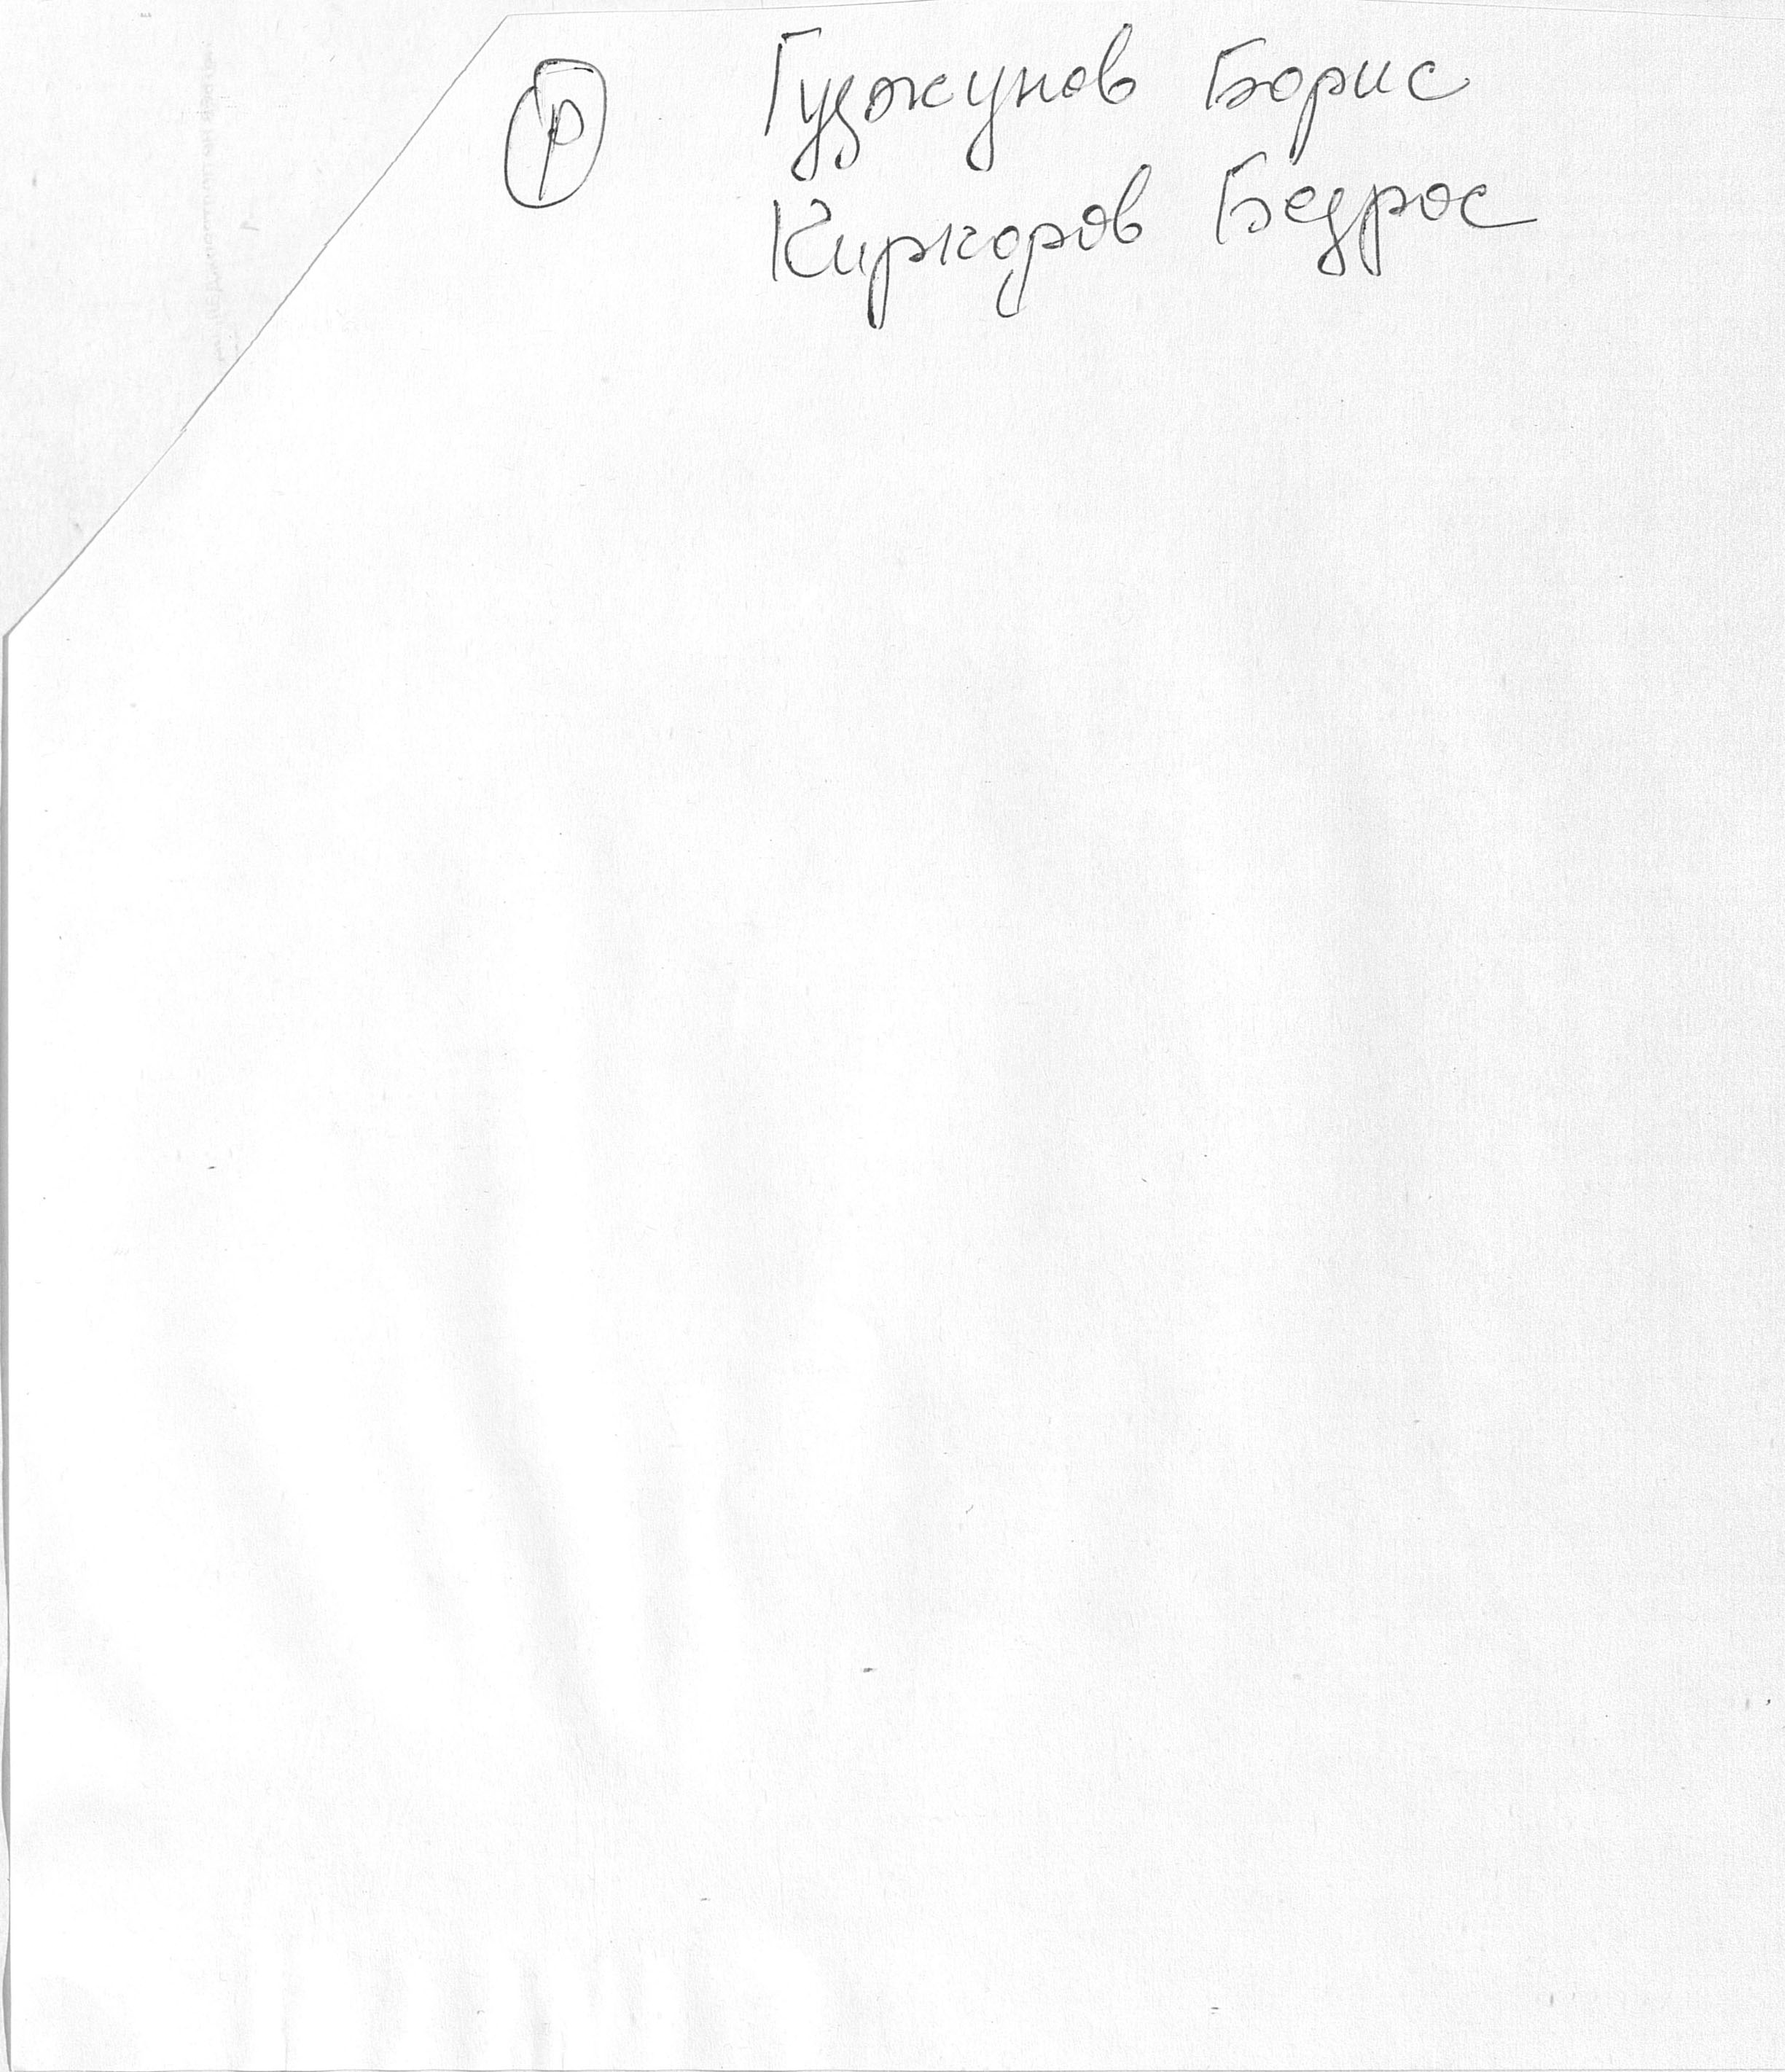 Р Гуджунов Борис
Киркоров Бедрос